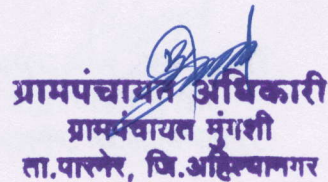 ग्रामपंचायत अधिकारी
ग्रामपंचायत मुंगशी
ता.पारनेर, जि.अहिल्यानगर